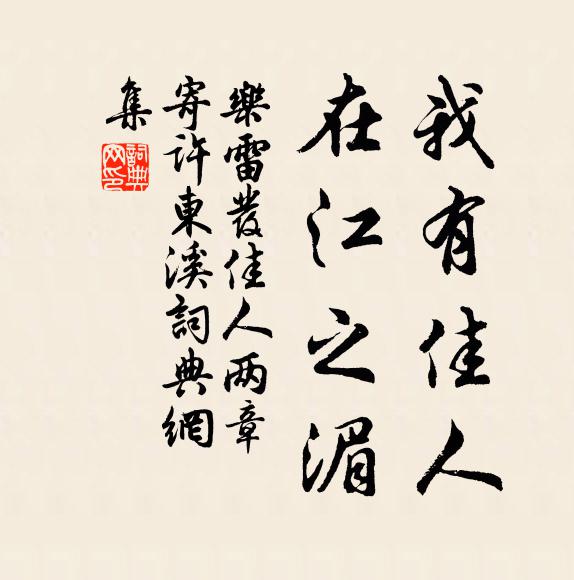 我有佳人
在江之湄
樂雷發佳人两章
寄許東溪詞典網
集
詞典网印